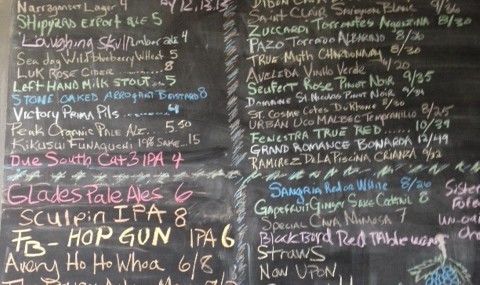 Narragansett Lager 4
12.13.15
Shipyard Export Ale 5
Laughing Skull Amber ale 4
Sea dog Wild Blueberry Wheat 5
Luk Rose Cider 8
Left Hand Milk Stout 5
Stone Oaked Arrogant Bastard 8
Victory Prima Pils 4
Peak Organic Pale Ale... 5.50
Kikusui Funaguchi 19% Sake.. 15
Due South Cat 3 IPA 4
Glades Pale Ales 6
Sculpin IPA 8
FB- Hop Gun IPA 6
Avery Ho Ho Whoa 6/8
Saint Clair Sauvignon Blanc 9/36
Zuccardi Torrontes Argentina 8/30
Pazo Torrado Albarino 8/26
True Myth Chardonnay 8/30
Aveleda Vinho Verde 4/20
Seufert Rose Pinot Noir 9/35
Domaine St Nicolas Pinot Noir 9/34
St. Cosme Cotes Du Rhone 8/30
Urban Uco Malbec Tempranillo 8/25
Fenestra True Red...... 10/39
Grand Romance Bonarda 12/49
Ramirez DLa Piscina Crianza 9/32
Sangria Red or White 8/26
Grapefruit Ginger Sake Cocktail 8
Special Cava Mimosa 7
Black Bord Red Table wine
Straws
Now Upon
Sister